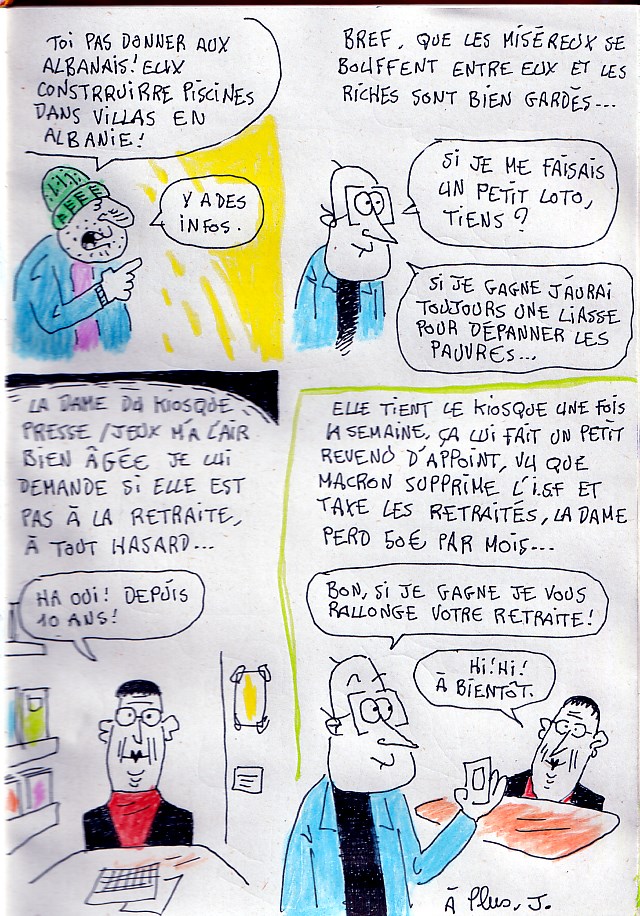 TOI PAS DONNER AUX
ALBANAIS! EUX
CONSTRRUIRRE PISCINES
DANS VILLAS EN
ALBANIE!
Y A DES
INFOS.
BREF, QUE LES MISÉREUX SE
BOUFFENT ENTRE EUX ET LES
RICHES SONT BIEN GARDÉS...
SI JE ME FAISAIS
UN PETIT LOTO,
TIENS?
SI JE GAGNE J'AURAI
TOUJOURS UNE LIASSE
POUR DÉPANNER LES
PAUVRES...
LA DAME DU KIOSQUE
PRESSE/JEUX M'A L'AIR
BIEN ÂGÉE JE LUI
DEMANDE SI ELLE EST
PAS À LA RETRAITE,
À TOUT HASARD...
HA OUI! DEPUIS
10 ANS!
ELLE TIENT LE KIOSQUE UNE FOIS
LA SEMAINE, ÇA LUI FAIT UN PETIT
REVENU D'APPOINT, VU QUE
MACRON SUPPRIME L'I.S.F ET
TAXE LES RETRAITÉS, LA DAME
PERD 50€ PAR MOIS...
BON, SI JE GAGNE JE VOUS
RALLONGE VOTRE RETRAITE!
HI! HI!
À BIENTÔT.
À Plus, J.